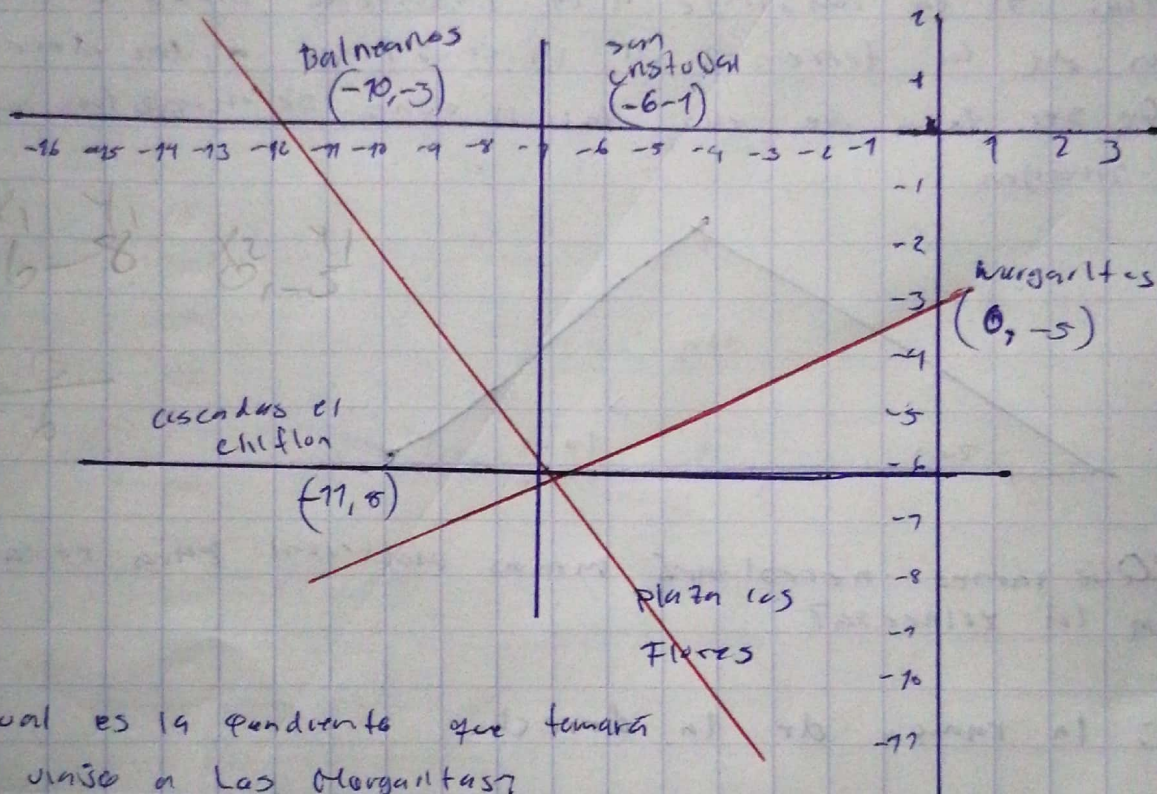 Balnearios
(-10,-3)
san
cristobal
(-6-1)
2
1
-16 -15 -14 -13 -12 -11 -10 -9 -8 -7 -6 -5 -4 -3 -2 -1 1 2 3
-1
-2
-3
Margaritas
(0, -5)
-4
-5
-6
cascadas el
chiflon
(-11, 8)
-7
-8
plaza las
Flores
-9
-10
-11
ual es la pendiente que tomará
viaje a Las Margaritas?